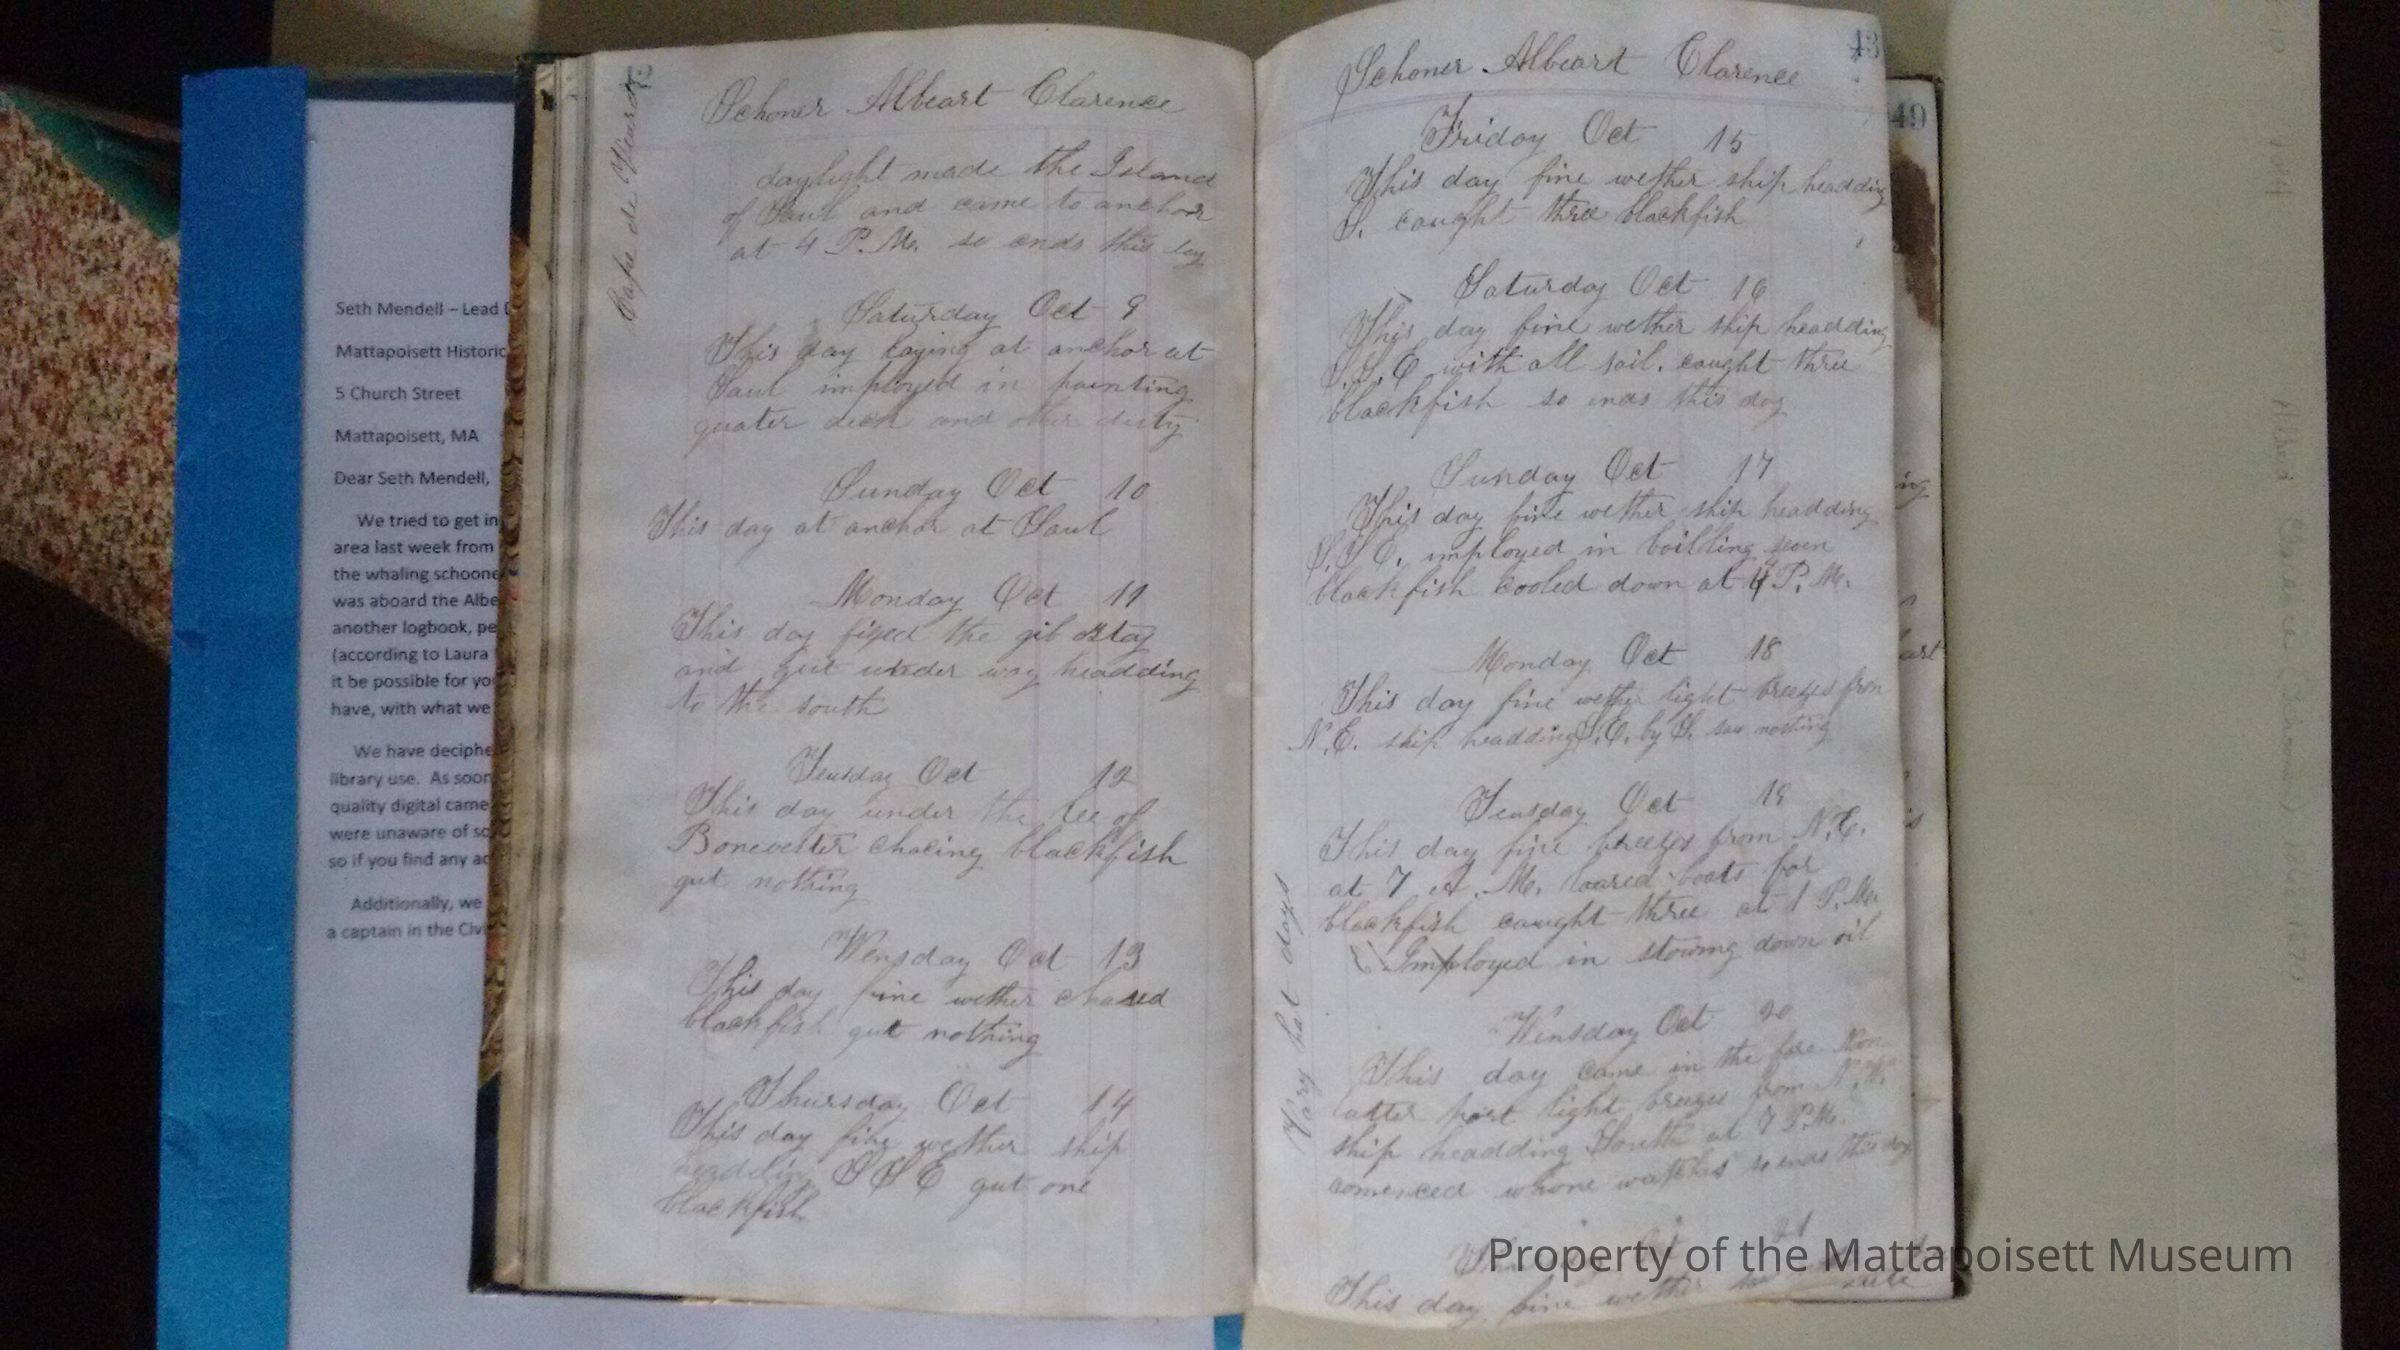 Seth Mendell – Lead
Mattapoisett Historic
5 Church Street
Mattapoisett, MA
Dear Seth Mendell,
We tried to get in
area last week from
the whaling schoone
was aboard the Albe
another logbook, pe
(according to Laura
it be possible for yo
have, with what we
We have deciphe
library use. As soon
quality digital came
were unaware of so
so if you find any ad
Additionally, we
a captain in the Civi
Cape de Veards
Schoner Albeart Clarence
daylight made the Island
of Saul and came to anchor
at 4 P.M. so ends this day
Saturday Oct 9
This day laying at anchor at
Saul imployed in painting
quater deck and other duty
Sunday Oct 10
This day at anchor at Saul
Monday Oct 11
This day fixed the gib stay
and gut under way headding
to the south
Teusday Oct 12
This day under the lee of
Bonevester chacing blackfish
gut nothing
Wensday Oct 13
This day fine wether chased
blackfish gut nothing
Thursday Oct 14
This day fine wether ship
headding S S E gut one
blackfish
43
Schoner Albeart Clarence
Friday Oct 15
This day fine wether ship headding
S. caught three blackfish
Saturday Oct 16
This day fine wether ship headding
S.S.E with all sail. caught three
blackfish so ends this day
Sunday Oct 17
This day fine wether ship headding
S.S.E. imployed in boilling seven
blackfish cooled down at 4 P.M.
Monday Oct 18
This day fine wether light breezes from
N.E. ship headding S.E. by S. saw nothing
Teusday Oct 19
This day fine breezes from N.E.
at 7 A.M. loared boats for
blackfish caught three at 1 P.M.
Imployed in stowing down oil
Vary hot days
Wensday Oct 20
This day came in the fore
latter part light breezes from N.W.
ship headding South at 7 P.M.
comenced whone watches so ends this day
21
This day fine wether
49
Property of the Mattapoisett Museum